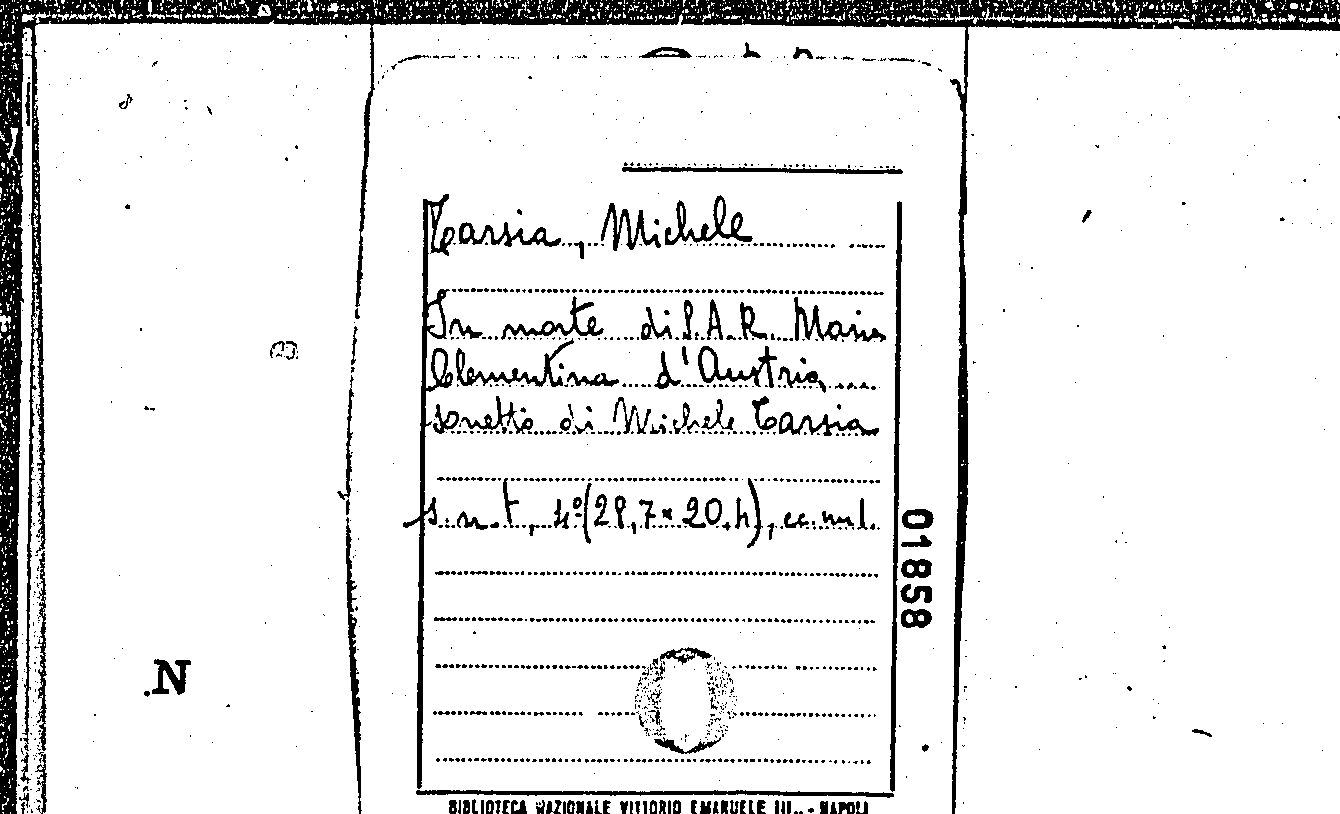 Tarsia, Michele
In morte di S.A.R. Maria
Clementina d'Austria ...
sonetto di Michele Tarsia
s.n.t, 4º (28,7 × 20,4), cc.nn.1.
01858
N
BIBLIOTECA NAZIONALE VITTORIO EMANUELE III. - NAPOLI